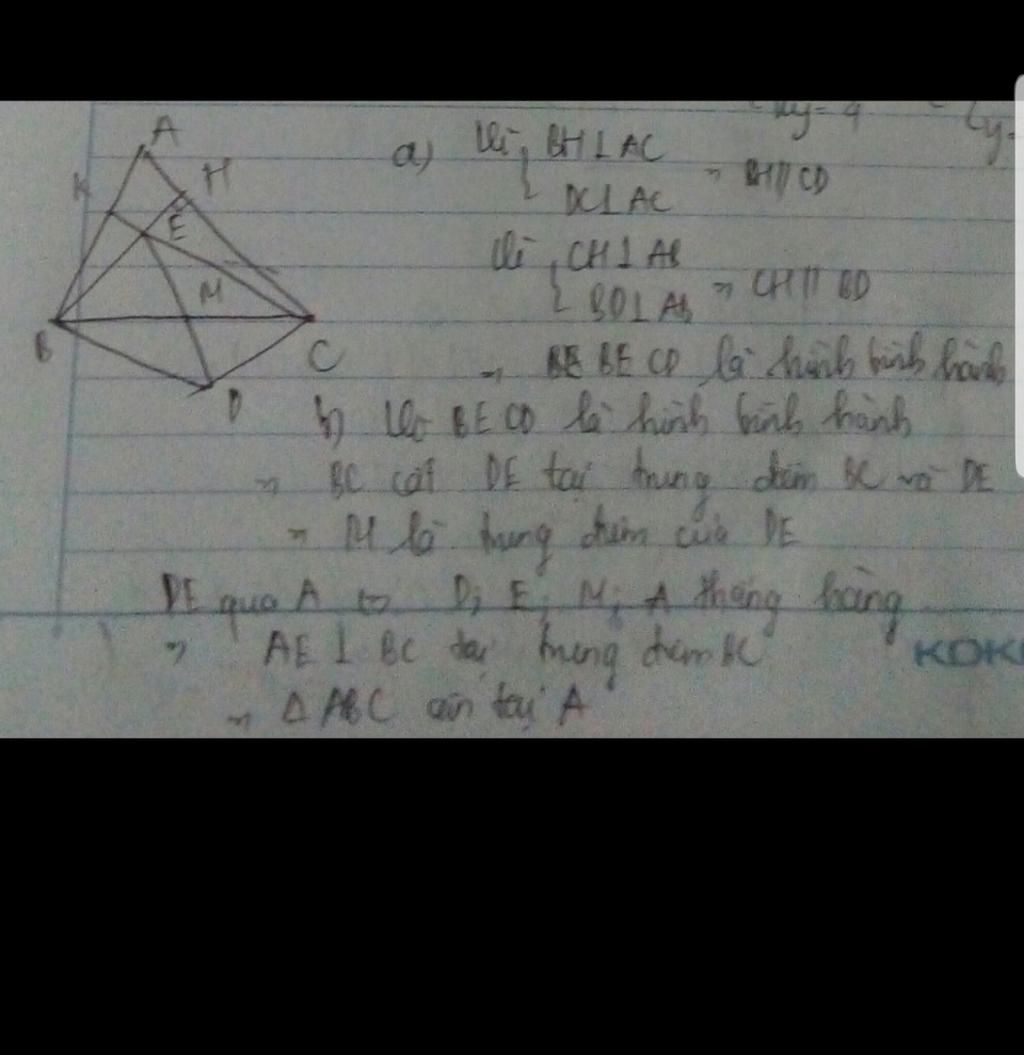 xy = 4
A
K
H
E
M
B
C
D
a) Vì { BH ⊥ AC
DC ⊥ AC
=> BH // CD
Vì { CH ⊥ AB
BD ⊥ AB
=> CH // BD
=> BE BECD là hình bình hành
b) Vì BECD là hình bình hành
=> BC cắt DE tại trung điểm BC và DE
=> M là trung điểm của DE
DE qua A => D; E; M; A thẳng hàng
=> AE ⊥ BC tại trung điểm BC
=> Δ ABC cân tại A